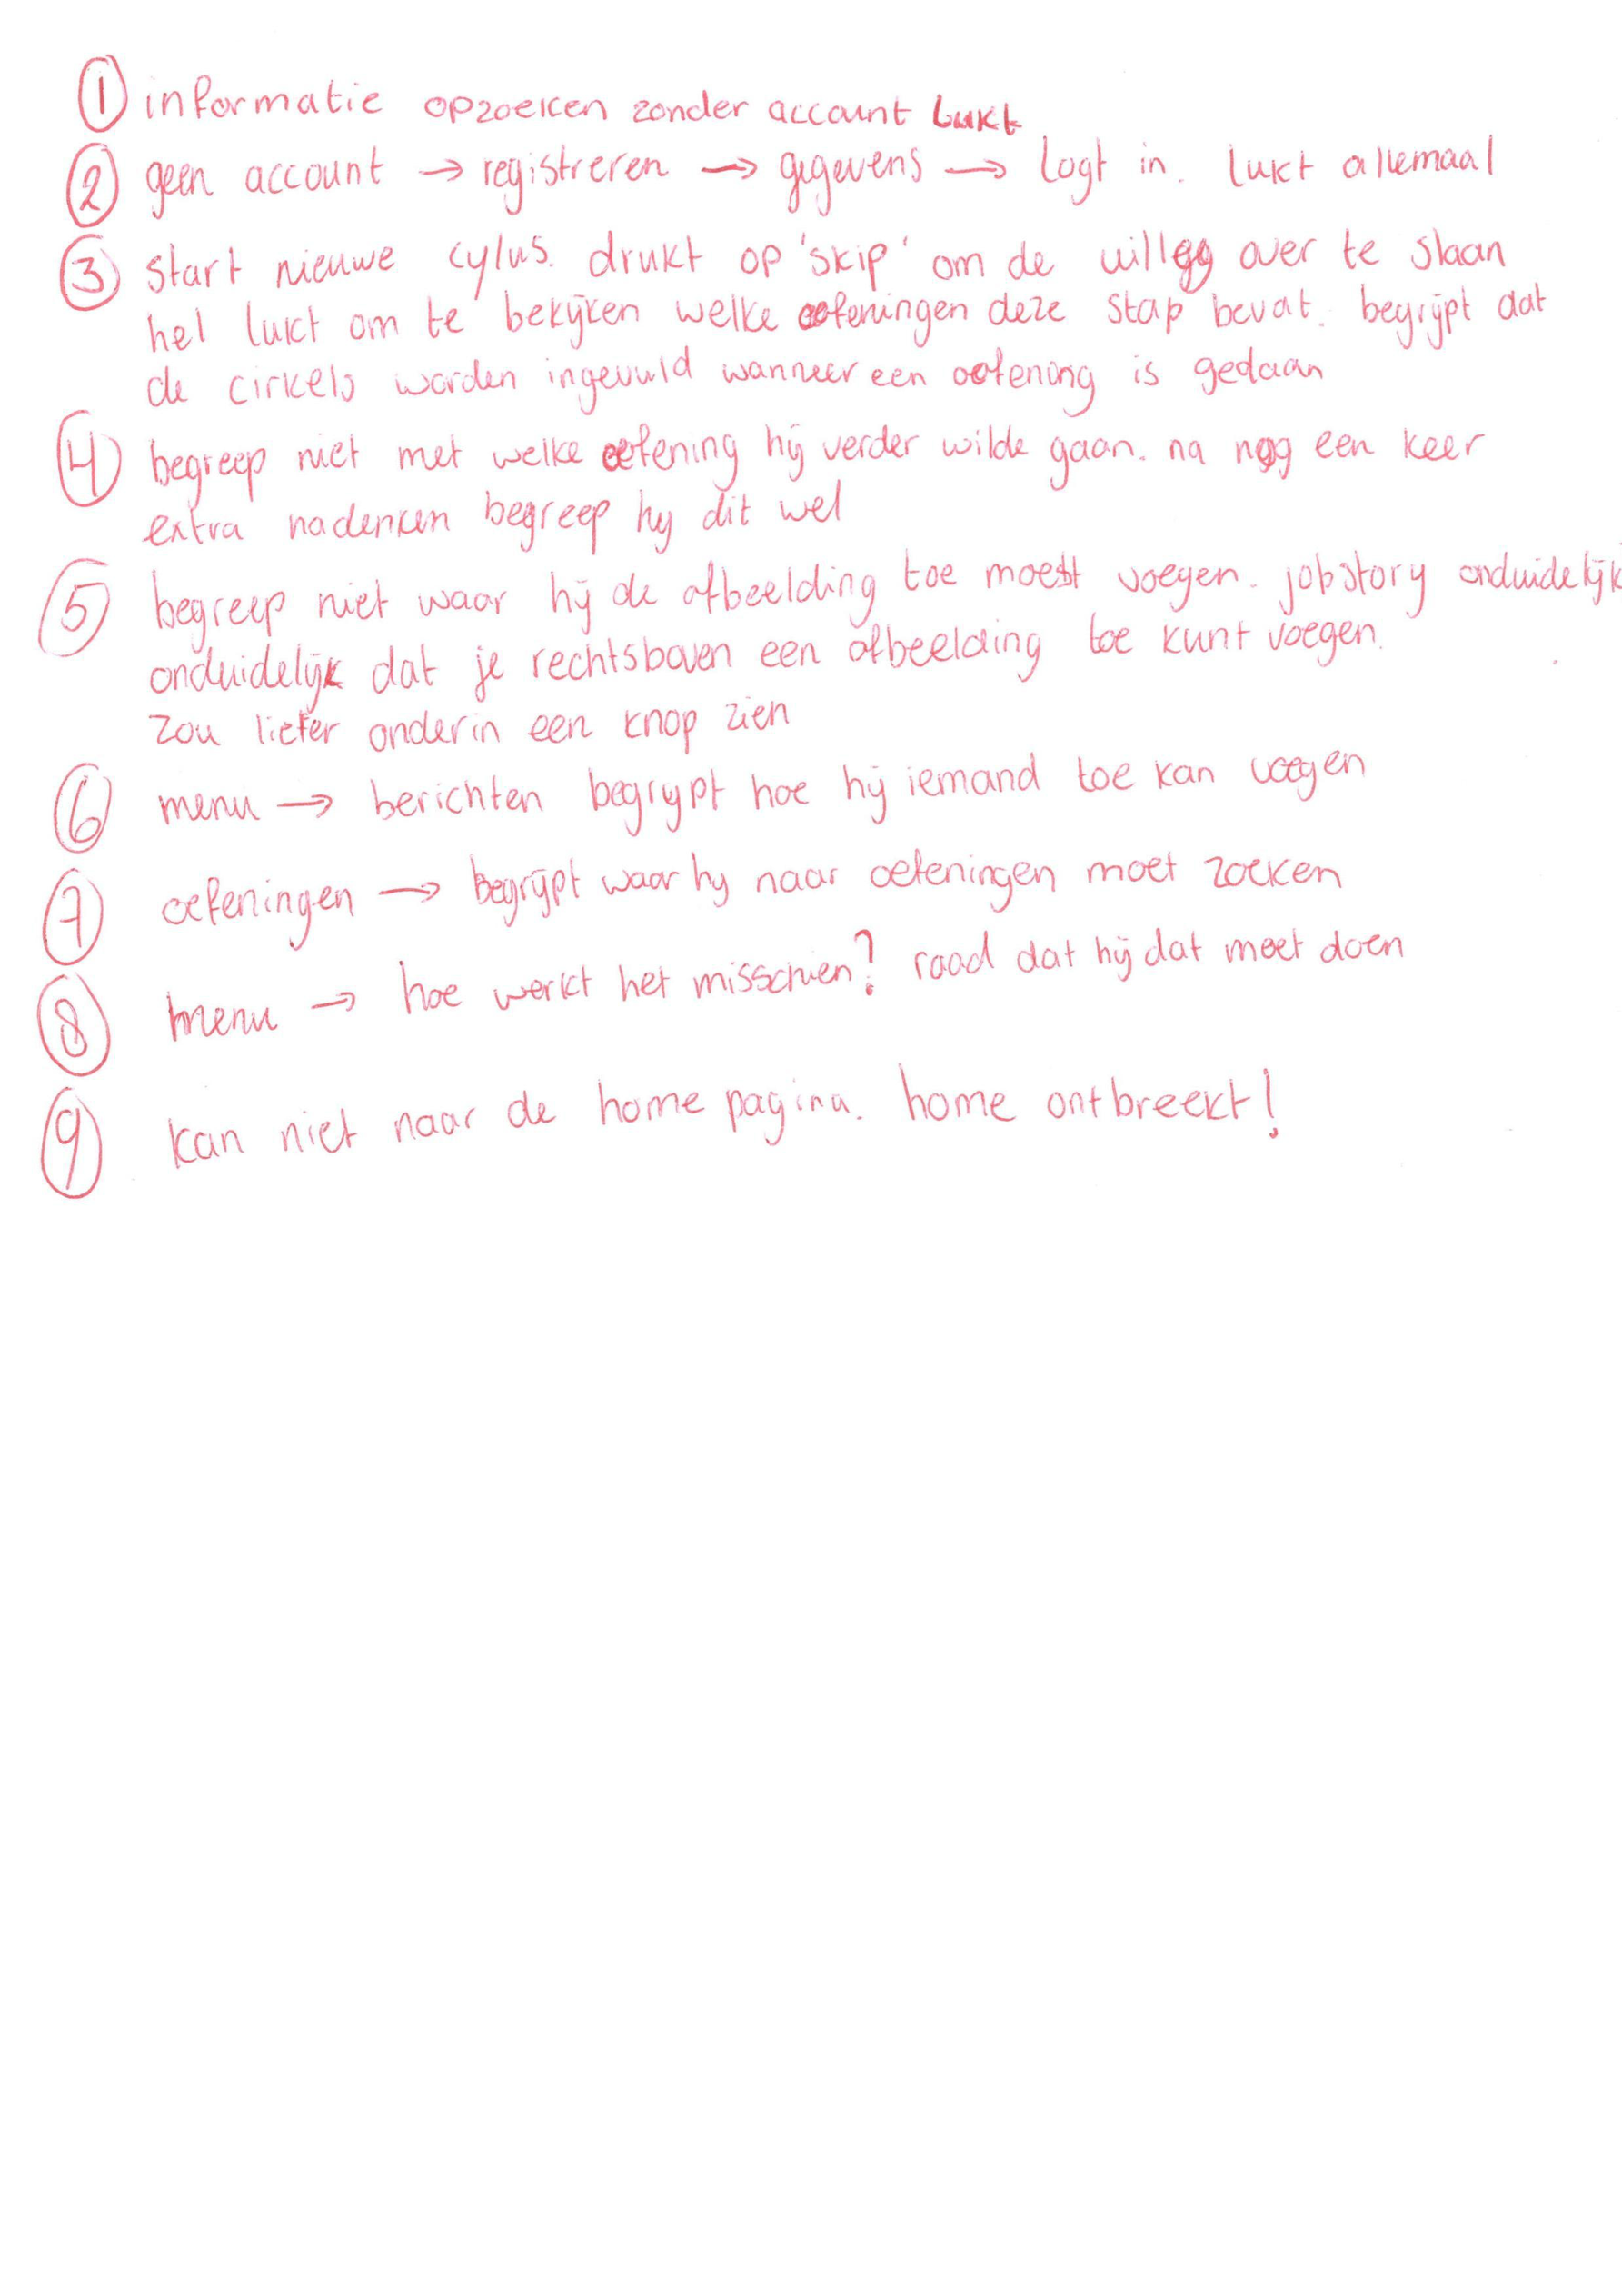 ① informatie opzoeken zonder account lukt
② geen account → registreren → gegevens → logt in. lukt allemaal
③ start nieuwe cylus. drukt op 'skip' om de uitleg over te slaan
het lukt om te bekijken welke oefeningen deze stap bevat. begrijpt dat
de cirkels worden ingevuld wanneer een oefening is gedaan
④ begreep niet met welke oefening hij verder wilde gaan. na nog een keer
extra nadenken begreep hij dit wel
⑤ begreep niet waar hij de afbeelding toe moest voegen. jobstory onduidelijk
onduidelijk dat je rechtsboven een afbeelding toe kunt voegen.
Zou liefer onderin een knop zien
⑥ menu → berichten begrijpt hoe hij iemand toe kan voegen
⑦ oefeningen → begrijpt waar hij naar oefeningen moet zoeken
⑧ menu → hoe werkt het misschien? raad dat hij dat moet doen
⑨ kan niet naar de home pagina. home ontbreekt!